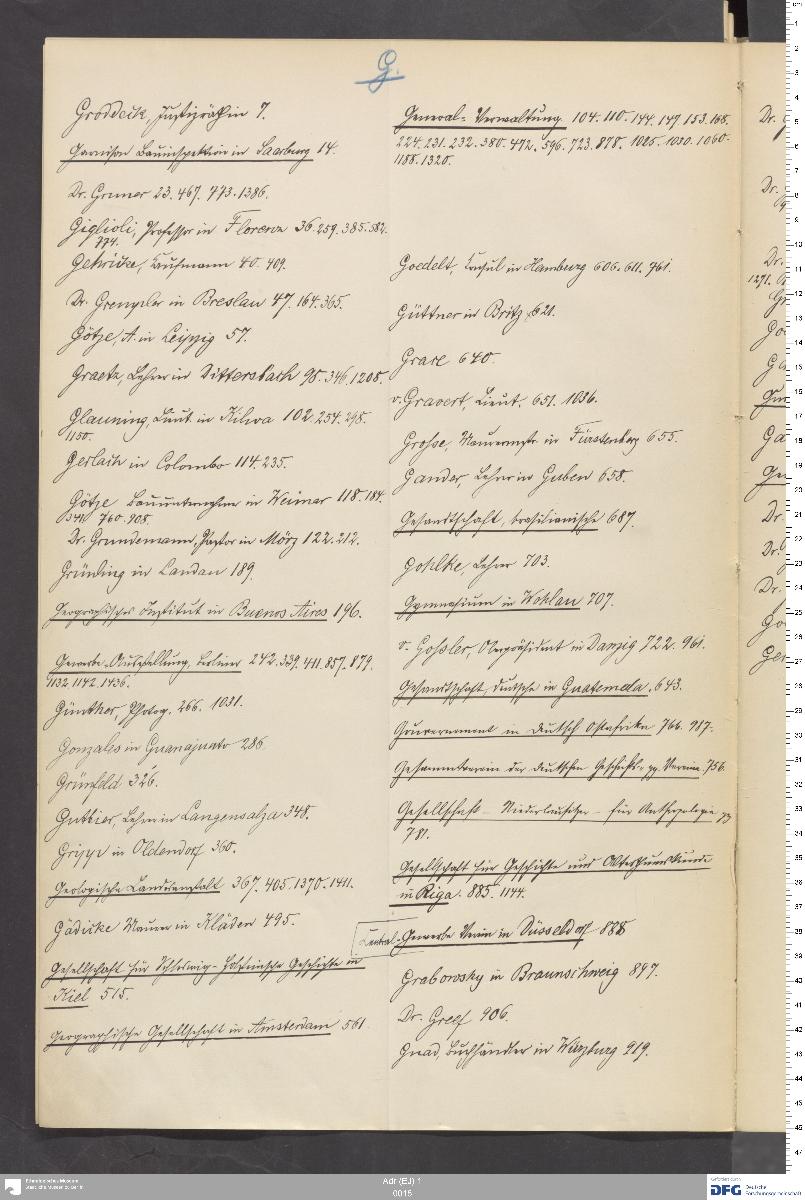 G.
Groddeck, Justizräthin 7.
Garnison Bauinspektion in Saarburg 14.
Dr. Gruner 23. 467. 773. 1386.
Giglioli, Professor in Florenz 36. 259. 385. 582.
774.
Gehricke, Kaufmann 40. 409.
Dr. Grempler in Breslau 47. 164. 365.
Götze, A. in Leipzig 57.
Graetz, Lehrer in Dittersbach 98. 346. 1208.
Glauning, Lieut. in Kilwa 102. 254. 298.
1150.
Gerlach in Colombo 114. 235.
Götze Bauunternehmer in Weimar 118. 184.
341 760. 908.
Dr. Grundemann, Pastor in Mörz 122. 212.
Grünling in Landau 189.
Geographisches Institut in Buenos Aires 196.
Gewerbe-Ausstellung, Berliner 242. 339. 411. 857. 879.
1132. 1142. 1436.
Günther, Photog. 266. 1031.
Gonzales in Guanajuato 286.
Grünfeld 326.
Gutbier, Lehrer in Langensalza 348.
Gripp in Oldendorf 360.
Geologische Landesanstalt 367. 405. 1370. 1411.
Gädicke Maurer in Kläden 495.
Gesellschaft für Schleswig-Holsteinische Geschichte in
Kiel 515.
Geographische Gesellschaft in Amsterdam 561.
General-Verwaltung 104. 110. 144. 147. 153. 168.
224. 231. 232. 380. 472. 596. 723. 878. 1025. 1030. 1060.
1188. 1320.
Goedelt, Consul in Hamburg 606. 611. 761.
Güttner in Britz 621.
Grase 640.
v. Gravert, Lieut. 651. 1036.
Grosse, Maurermstr. in Fürstenberg 655.
Gander, Lehrer in Guben 658.
Gesandtschaft, brasilianische 687.
Gohlke, Lehrer 703.
Gymnasium in Wohlau 707.
v. Gossler, Oberpräsident in Danzig 722. 961.
Gesandtschaft, deutsche in Guatemala. 643.
Gouvernement in Deutsch Ostafrika 766. 987.
Gesammtverein der deutschen Geschichts- pp. Vereine. 756.
Gesellschaft – Niederlausitzer – für Anthropologie pp
781.
Gesellschaft für Geschichte und Alterthumskunde
in Riga. 885. 1144.
Central-Gewerbe Verein in Düsseldorf 888
Grabowsky in Braunschweig 897.
Dr. Greef 906.
Gnad, Buchhändler in Würzburg 919.
Adr (EJ) 1
0015
Ethnologisches Museum
Staatliche Museen zu Berlin
gefördert durch
DFG Deutsche
Forschungsgemeinschaft